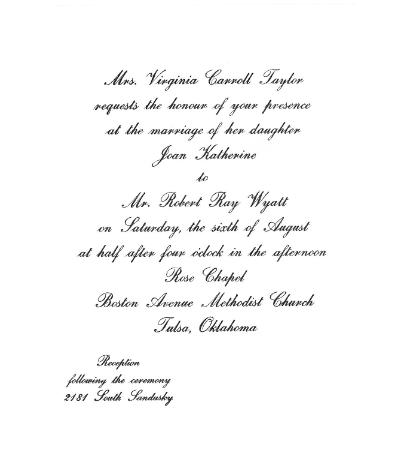 Mrs. Virginia Carroll Taylor
requests the honour of your presence
at the marriage of her daughter
Joan Katherine
to
Mr. Robert Ray Wyatt
on Saturday, the sixth of August
at half after four o'clock in the afternoon
Rose Chapel
Boston Avenue Methodist Church
Tulsa, Oklahoma
Reception
following the ceremony
2181 South Sandusky